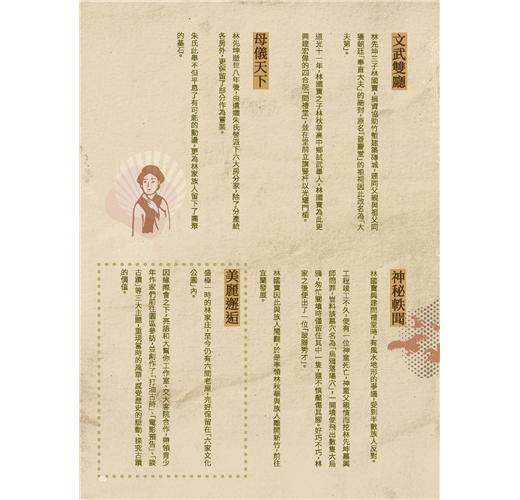 文武雙廳
林先坤三子林國寶，捐資協助竹塹建築磚城，連同父親與祖父同
獲朝廷「奉直大夫」的絕封，原名「善慶堂」的祖祠因此改名為「大
夫第」。
道光十一年，林國寶之子林秋華高中鄉試武舉人，林國寶為此更
興建宏偉的四合院「問禮堂」，並在堂前立旗豎杆以光耀門楣。
母儀天下
林先坤逝世八年後，由遺孀朱氏替派下六大房分家，除了分產給
各房外，更保留了部分作為嘗業。
朱氏此舉不但平息了有可能的動盪，更為林家族人留下了團聚
的基石。
神秘軼聞
林國寶興建問禮堂時，有風水地形的爭議，受到半數族人反對。
工程竣工不久，便有一位神童死亡，神童父親憤而挖林先坤墓興
師問罪，豈料該墓穴名為「烏鴉落陽穴」，一開墳便飛出數隻大烏
鴉，匆忙闔墳時僅留住其中一隻，還不慎壓傷其腳。好巧不巧，林
家之後便出了一位「跛腳秀才」。
林國寶因此與族人鬧翻，於是率領林秋華與族人離開新竹，前往
宜蘭發展。
美麗邂逅
盛極一時的林家庄，至今仍有六間老屋，完好保留在「六家文化
公園」內。
因緣際會之下，亮語和大幫你工作室、交大客院合作，帶領青少
年作家們前往園區參訪，並創作了「打油古詩」、「電影預告」、「談
古蹟」等三大主題，重現當時的風華，感受歷史的脈動，探究古蹟
的價值。